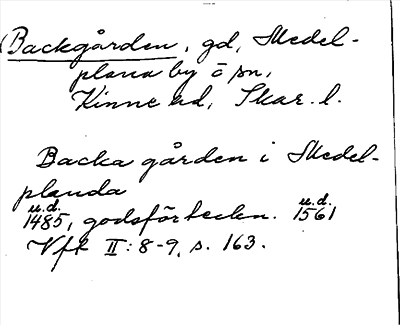 (Backgården, gd, Medel-
plana by o sn,
Kinne hd, Skar. l.
Backa gården i Medel-
planda
u.d. u.d.
1485, godsförteckn. 1561
Vfk II: 8-9, s. 163.